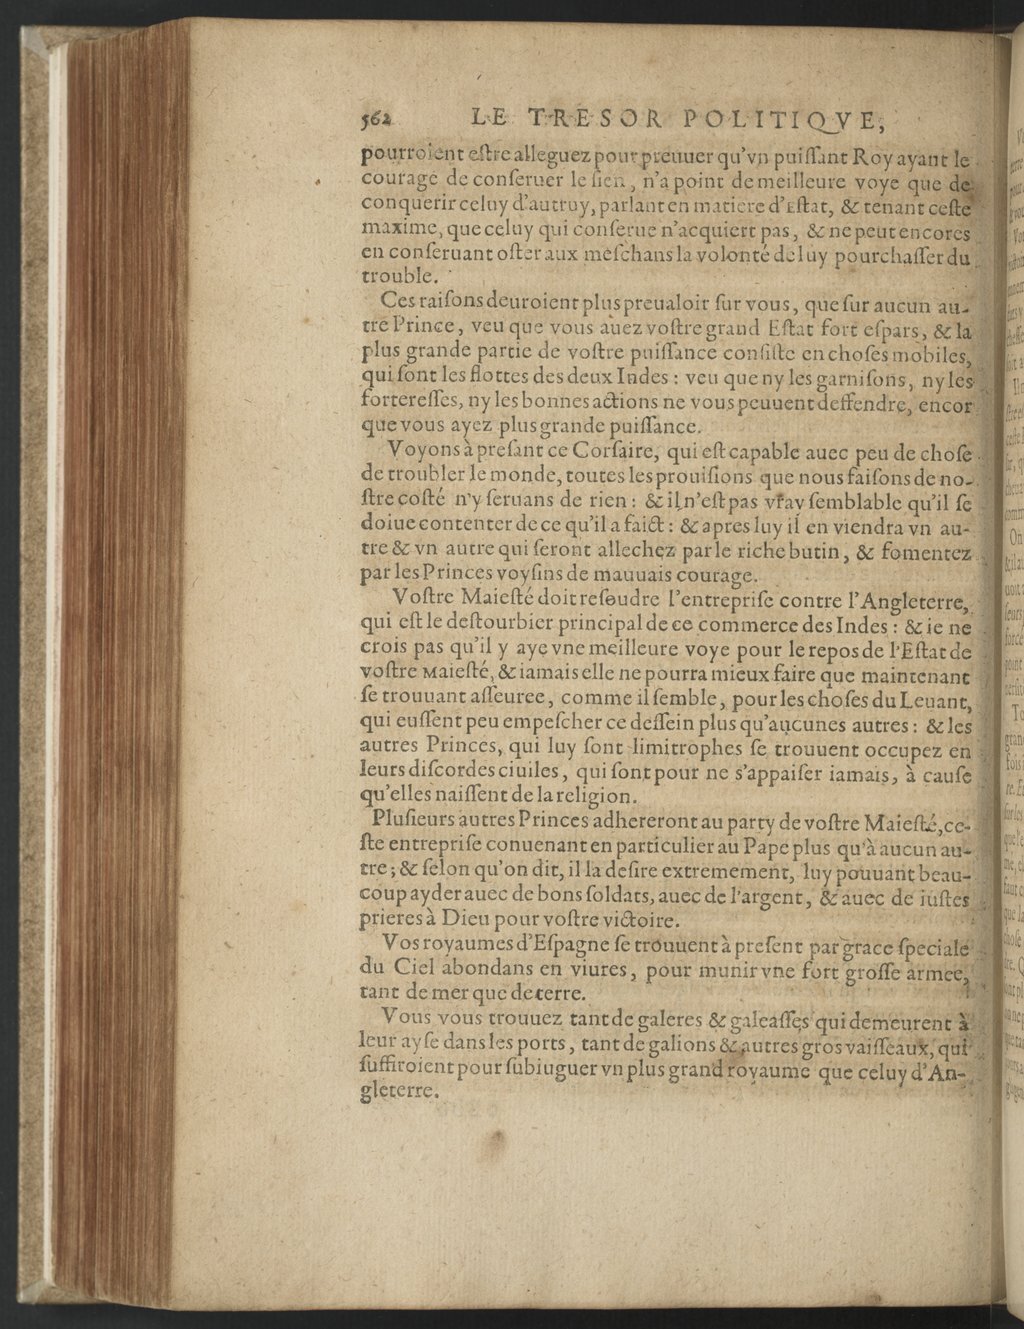 562 LE TRESOR POLITIQVE,
pourroient eſtre alleguez pour preuuer qu'vn puiſſant Roy ayant le
courage de conſeruer le ſien, n'a point de meilleure voye que de
conquerir celuy d'autruy, parlant en matiere d'Eſtat, & tenant ceſte
maxime, que celuy qui conſerue n'acquiert pas, & ne peut encores
en conſeruant oſter aux meſchans la volonté de luy pourchaſſer du
trouble.
Ces raiſons deuroient plus preualoir ſur vous, que ſur aucun au-
tre Prince, veu que vous auez voſtre grand Eſtat fort eſpars, & la
plus grande partie de voſtre puiſſance conſiſte en choſes mobiles,
qui ſont les flottes des deux Indes : veu que ny les garniſons, ny les
fortereſſes, ny les bonnes actions ne vous peuuent deffendre, encor
que vous ayez plus grande puiſſance.
Voyons à preſant ce Corſaire, qui eſt capable auec peu de choſe
de troubler le monde, toutes les prouiſions que nous faiſons de no-
ſtre coſté n'y ſeruans de rien : & il n'eſt pas vray ſemblable qu'il ſe
doiue contenter de ce qu'il a faict : & apres luy il en viendra vn au-
tre & vn autre qui ſeront allechez par le riche butin, & fomentez
par les Princes voyſins de mauuais courage.
Voſtre Maieſté doit reſoudre l'entrepriſe contre l'Angleterre,
qui eſt le deſtourbier principal de ce commerce des Indes : & ie ne
crois pas qu'il y aye vne meilleure voye pour le repos de l'Eſtat de
voſtre Maieſté, & iamais elle ne pourra mieux faire que maintenant
ſe trouuant aſſeuree, comme il ſemble, pour les choſes du Leuant,
qui euſſent peu empeſcher ce deſſein plus qu'aucunes autres : & les
autres Princes, qui luy ſont limitrophes ſe trouuent occupez en
leurs diſcordes ciuiles, qui ſont pour ne s'appaiſer iamais, à cauſe
qu'elles naiſſent de la religion.
Pluſieurs autres Princes adhereront au party de voſtre Maieſté, ce-
ſte entrepriſe conuenant en particulier au Pape plus qu'à aucun au-
tre ; & ſelon qu'on dit, il la deſire extremement, luy pouuant beau-
coup ayder auec de bons ſoldats, auec de l'argent, & auec de iuſtes
prieres à Dieu pour voſtre victoire.
Vos royaumes d'Eſpagne ſe trouuent à preſent par grace ſpeciale
du Ciel abondans en viures, pour munir vne fort groſſe armee,
tant de mer que de terre.
Vous vous trouuez tant de galeres & galeaſſes qui demeurent à
leur ayſe dans les ports, tant de galions & autres gros vaiſſeaux, qui
ſuffiroient pour ſubiuguer vn plus grand royaume que celuy d'An-
gleterre.